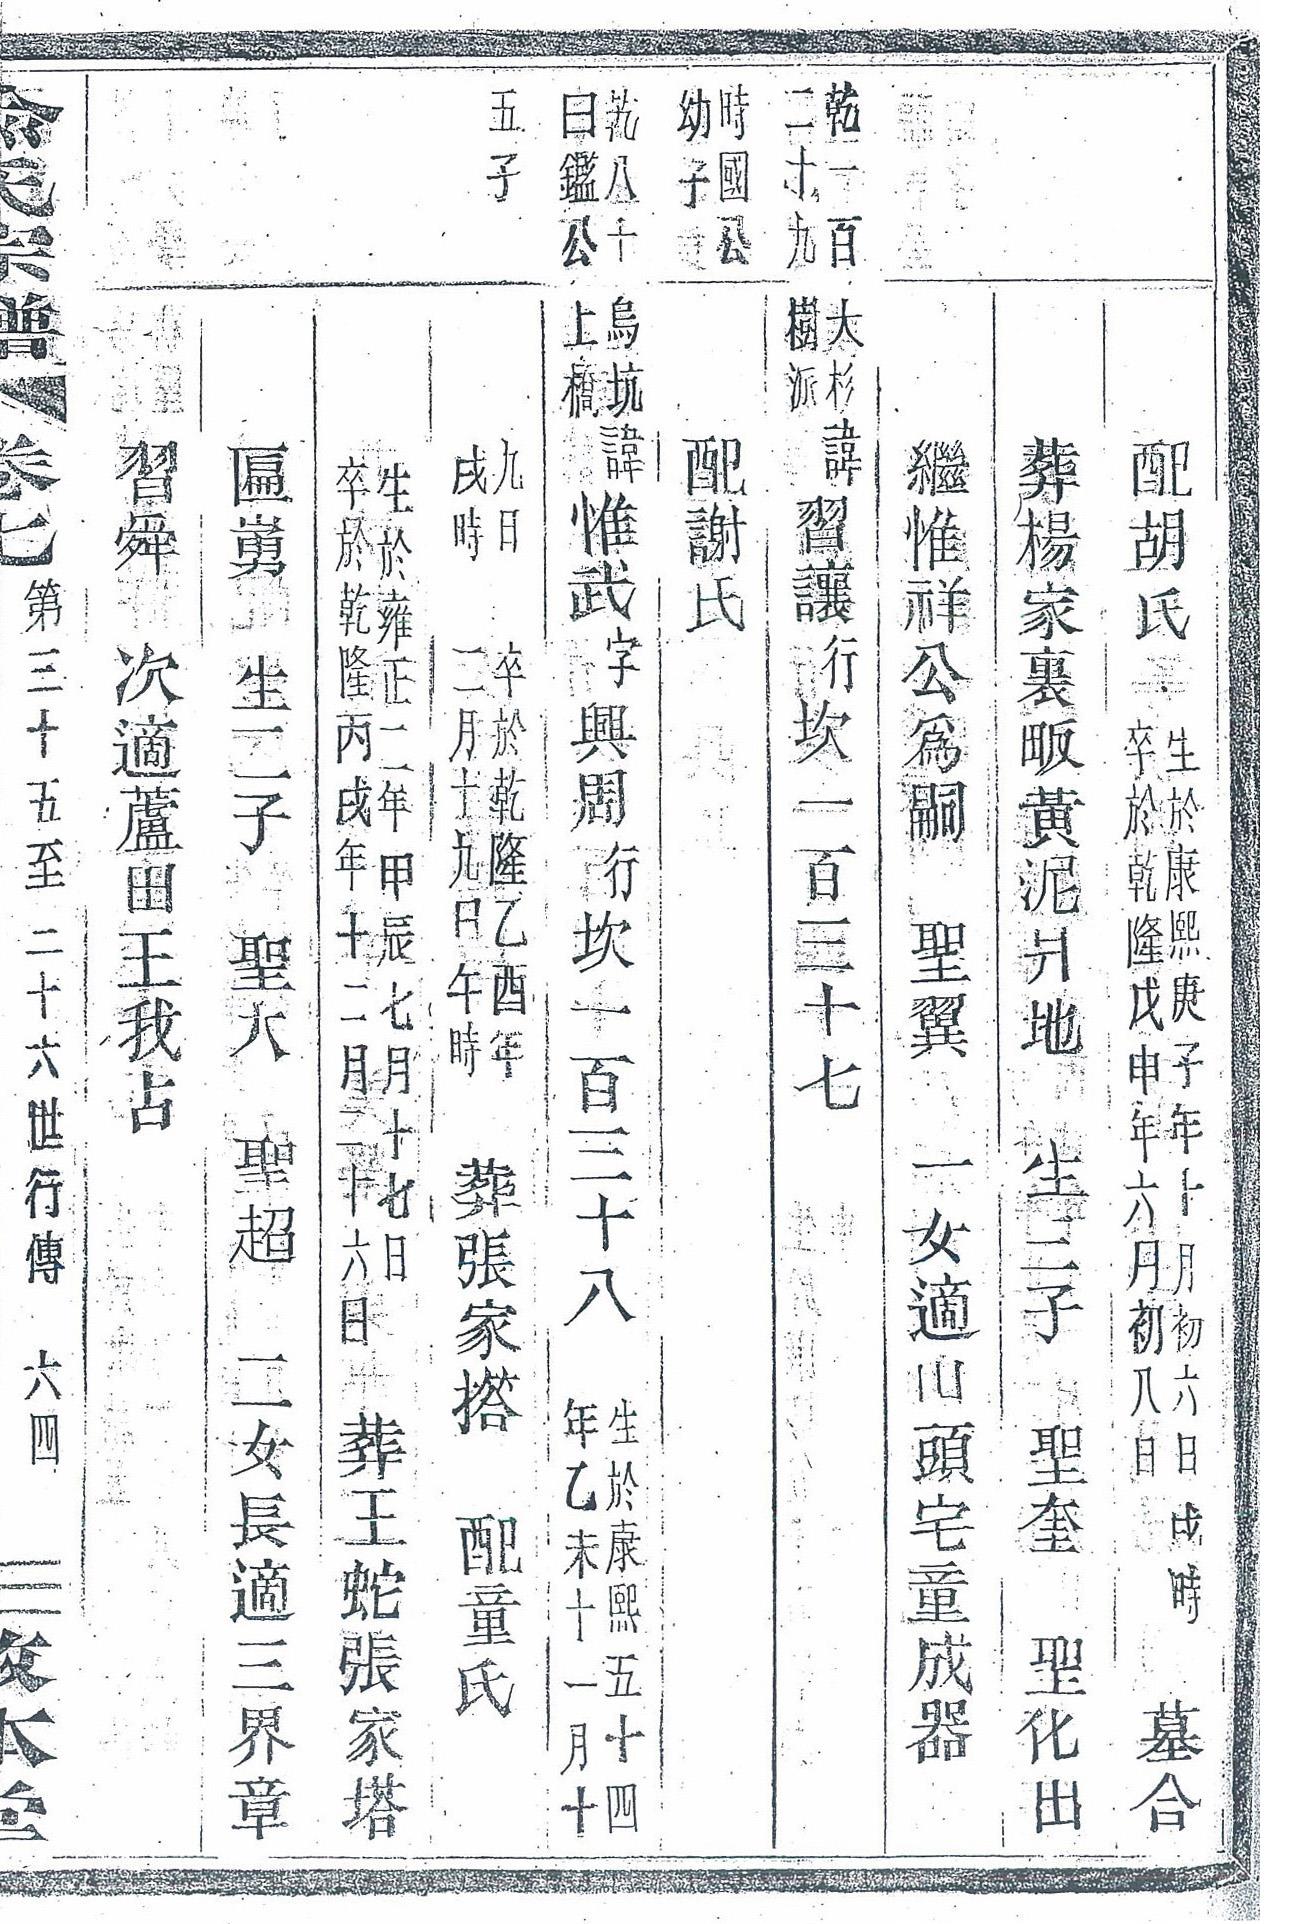 配胡氏 生於康熙庚子年十月初六日戌時 卒於乾隆戊申年六月初八日 墓合
葬楊家裏畈黃泥爿地 生三子 聖奎 聖化出
繼惟祥公爲嗣 聖翼 一女適山頭宅童成器
乾一百二十九 大杉樹派 諱習讓行坎一百三十七
時國公幼子 配謝氏
乾八十 曰鑑公 烏坑上橋 諱惟武字興周行坎一百三十八 生於康熙五十四年乙未十一月十
五子 九日戌時 卒於乾隆乙酉年二月十九日午時 葬張家搭 配童氏
生於雍正二年甲辰七月十七日 卒於乾隆丙戌年十二月二十六日 葬王蛇張家塔
匾嶲 生二子 聖大 聖超 二女長適三界章
習舜 次適蘆田王我占
俞氏宗譜 卷七 第三十五至二十六世行傳 六四 敦本堂